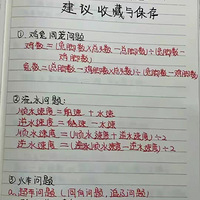 建议收藏与保存
① 鸡兔同笼问题
鸡数=(兔脚数×总头数-总脚数)÷(兔脚数-
鸡脚数)
兔数=(总脚数-鸡脚数×总头数)÷(兔脚数
-鸡脚数)
② 流水问题:
顺水速度=船速+水速
逆水速度=船速-水速
船水速度=(顺水速度+逆水速度)÷2
逆水速度=(顺水速度-逆水速度)÷2
③ 火车问题
a、超车问题(同向问题,追及问题)